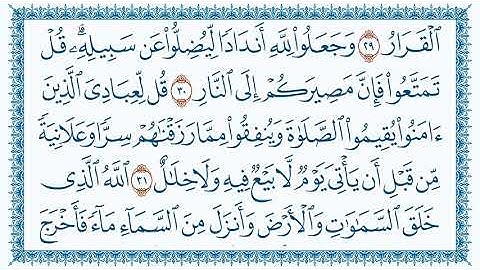 ٱلْقَرَارُ ٢٩ وَجَعَلُوا۟ لِلَّهِ أَندَادًا لِّيُضِلُّوا۟ عَن سَبِيلِهِۦ ۗ قُلْ
تَمَتَّعُوا۟ فَإِنَّ مَصِيرَكُمْ إِلَى ٱلنَّارِ ٣٠ قُل لِّعِبَادِىَ ٱلَّذِينَ
ءَامَنُوا۟ يُقِيمُوا۟ ٱلصَّلَوٰةَ وَيُنفِقُوا۟ مِمَّا رَزَقْنَٰهُمْ سِرًّا وَعَلَانِيَةً
مِّن قَبْلِ أَن يَأْتِىَ يَوْمٌ لَّا بَيْعٌ فِيهِ وَلَا خِلَٰلٌ ٣١ ٱللَّهُ ٱلَّذِى
خَلَقَ ٱلسَّمَٰوَٰتِ وَٱلْأَرْضَ وَأَنزَلَ مِنَ ٱلسَّمَآءِ مَآءً فَأَخْرَجَ